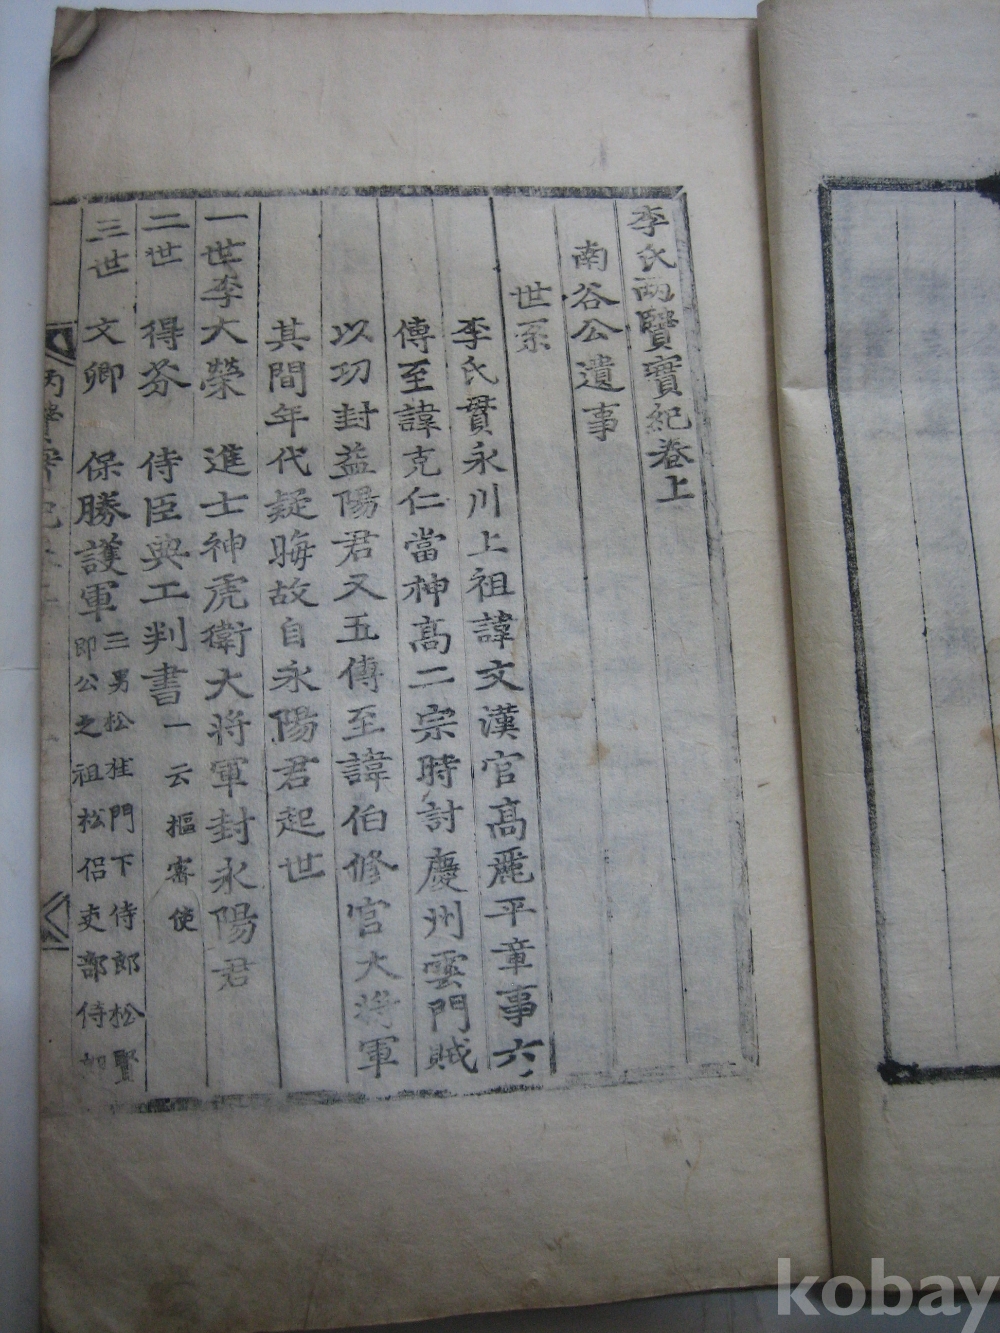 李氏兩賢實紀卷上
南谷公遺事
世系
李氏貫永川上祖諱文漢官高麗平章事六
傳至諱克仁當神高二宗時討慶州雲門賊
以功封益陽君又五傳至諱伯修官大將軍
其間年代疑晦故自永陽君起世
一世李大榮 進士神虎衛大將軍封永陽君
二世 得芬 侍臣典工判書一云樞密使
三世 文卿 保勝護軍三男松桂門下侍郎松賢
即公之祖松侶吏部侍郎
kobay